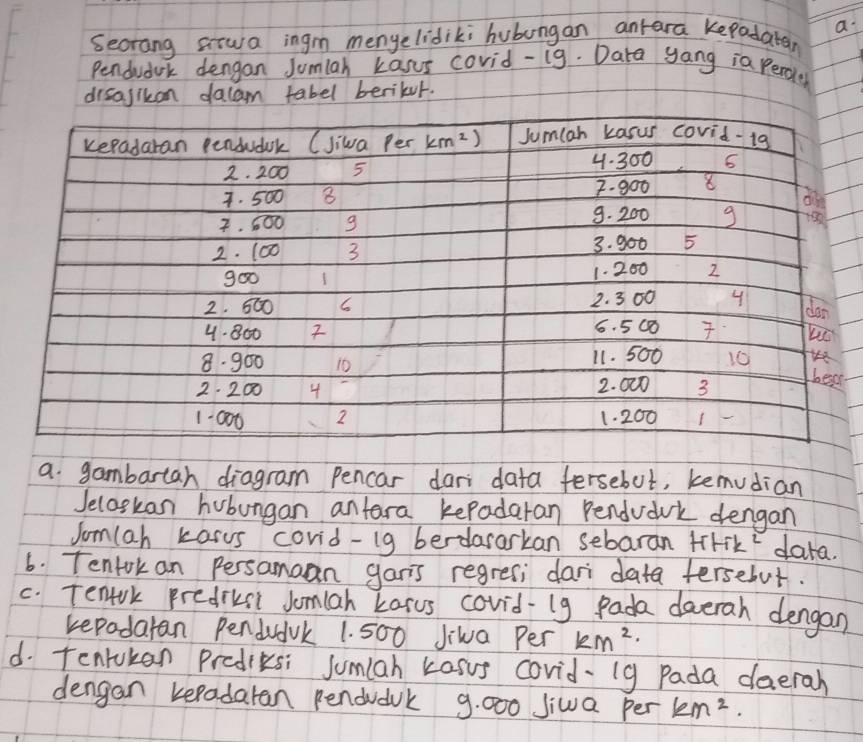 Seorang siswa ingin mengelidiki hubungan antara kepadatan a.
Penduduk dengan Jumlah kasus covid-19. Data yang ia peroleh
disajikan dalam tabel berikut.
kepadatan penduduk (Jiwa Per km²) Jumlah kasus covid-19
2.200 5 4.300 6
7.500 8 7.900 8
7.600 9 9.200 9
2.100 3 3.900 5
900 1 1.200 2
2.600 6 2.300 4 dan
4.800 7 6.500 7
8.900 10 11.500 10 ke
2.200 4 2.000 3 besar
1.000 2 1.200 1 -
a. gambarlah diagram pencar dari data tersebut, kemudian
Jelaskan hubungan antara kepadatan penduduk dengan
Jumlah kasus covid-19 berdasarkan sebaran titik² data.
b. Tentukan Persamaan garis regresi dari data tersebut.
c. Tentuk prediksi Jumlah kasus covid-19 pada daerah dengan
kepadatan penduduk 1.500 Jiwa per km².
d. Tentukan Prediksi Jumlah kasus covid-19 pada daerah
dengan kepadatan penduduk 9.000 Jiwa per km².